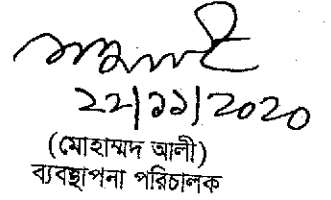 ২২/১১/২০২০
(মোহাম্মদ আলী)
ব্যবস্থাপনা পরিচালক